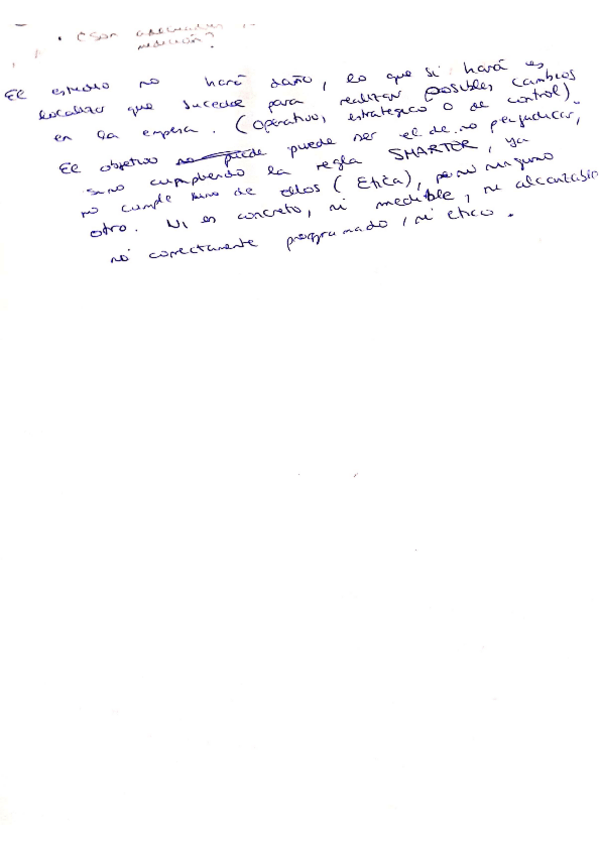 • ¿Son adecuadas
medición?
El estudio no hará daño, lo que si hará es
localizar que sucede para realizar posibles cambios
en la empesa. (Operativo, estrategico o de control).
El objetivo no puede puede ser el de no perjudicar,
sino cumpliendo la regla SMARTER, ya
no cumple uno de ellos (Etica), ni ninguno
otro. Ni es concreto, ni medible, ni alcanzable
ni correctamente programado, ni etico.